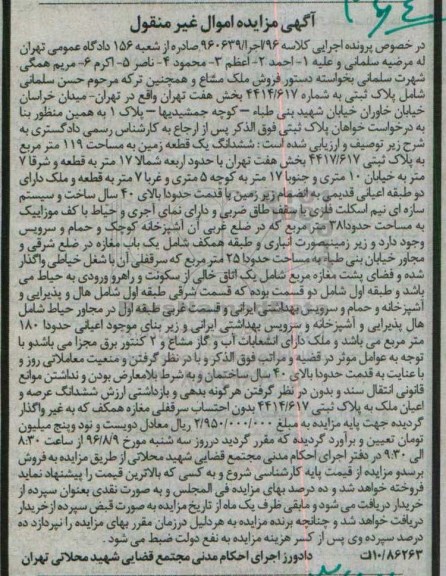 آگهی مزایده اموال غیر منقول
در خصوص پرونده اجرایی کلاسه ۹۶/اجرا/۹۶۰۶۳۹ صادره از شعبه ۱۵۶ دادگاه عمومی تهران
له مرضیه سلمانی و علیه ۱- احمد ۲- اعظم ۳- محمود ۴- ناصر ۵- اکرم ۶- مریم همگی
شهرت سلمانی بخواسته دستور فروش ملک مشاع و همچنین ترکه مرحوم حسن سلمانی
شامل پلاک ثبتی به شماره ۴۴۱۴/۶۱۷ بخش هفت تهران واقع در تهران- میدان خراسان
خیابان خاوران خیابان شهید بنی طباء – کوچه جمشیدیها – پلاک ۱ به همین منظور بنا
به درخواست خواهان پلاک ثبتی فوق الذکر پس از ارجاع به کارشناس رسمی دادگستری به
شرح زیر توصیف و ارزیابی شده است: ششدانگ یک قطعه زمین به مساحت ۱۱۹ متر مربع
به پلاک ثبتی ۴۴۱۷/۶۱۷ بخش هفت تهران با حدود اربعه شمالا ۱۷ متر به قطعه و شرقا ۷
متر به خیابان ۱۰ متری و جنوبا ۱۷ متر به کوچه ۵ متری و غربا ۷ متر به قطعه و ملک دارای
دو طبقه اعیانی قدیمی به انضمام زیر زمین با قدمت حدودا بالای ۴۰ سال ساخت و سیستم
سازه ای نیم اسکلت فلزی با سقف طاق ضربی و دارای نمای آجری و حیاط با کف موزاییک
به مساحت حدودا ۳۸ متر مربع که در ضلع غربی آن آشپزخانه کوچک و حمام و سرویس
وجود دارد و زیر زمین بصورت انباری و طبقه همکف شامل یک باب مغازه در ضلع شرقی و
مجاور خیابان بنی طباء به مساحت حدودا ۲۵ متر مربع که سرقفلی آن با شغل خیاطی واگذار
شده و فضای پشت مغازه مربع شامل یک اتاق خالی از سکونت و راهرو ورودی به حیاط می
باشد و طبقه اول شامل دو قسمت بوده که قسمت شرقی طبقه اول شامل هال و پذیرایی و
آشپزخانه و حمام و سرویس بهداشتی ایرانی و قسمت غربی طبقه اول در مجاور حیاط شامل
هال پذیرایی و آشپزخانه و سرویس بهداشتی ایرانی و زیر بنای موجود اعیانی حدودا ۱۸۰
متر مربع می باشد و ملک دارای انشعابات آب و گاز مشاع و ۲ کنتور برق مجزا می باشدو با
توجه به عوامل موثر در قضیه و مراتب فوق الذکر و با در نظر گرفتن و منعیت معاملاتی روز و
با عنایت به قدمت حدودا بالای ۴۰ سال ساختمان و به شرط بلامعارض بودن و نداشتن موانع
قانونی انتقال سند و بدون در نظر گرفتن هر گونه بدهی و بازداشتی ارزش ششدانگ عرصه و
اعیان ملک به پلاک ثبتی ۴۴۱۴/۶۱۷ بدون احتساب سرقفلی مغازه همکف که به غیر واگذار
گردیده جهت پایه مزایده به مبلغ ۲/۹۵۰/۰۰۰/۰۰۰ ریال معادل دویست و نود وپنج میلیون
تومان تعیین و برآورد گردیده که مقرر گردید درروز سه شنبه مورخ ۹۶/۸/۹ از ساعت ۸:۳۰
الی ۹:۳۰ در دفتر اجرای احکام مدنی مجتمع قضایی شهید محلاتی از طریق مزایده به فروش
برسدو مزایده از قیمت پایه کارشناسی شروع و به کسی که بالاترین قیمت را پیشنهاد نماید
فروخته خواهد شد و ده درصد بهای مزایده فی المجلس و به صورت نقدی بعنوان سپرده از
خریدار دریافت می شود و مابقی ظرف یک ماه از تاریخ مزایده به صورت قبض سپرده ازخریدار
دریافت خواهد شد و چنانچه برنده مزایده به هردلیل درزمان مقرر بهای مزایده را نپردازد ده
درصد سپرده وی پس از کسر هزینه مزایده به نفع دولت ضبط می شود.
۱۱۰/۸۶۲۶۳ت دادورز اجرای احکام مدنی مجتمع قضایی شهید محلاتی تهران